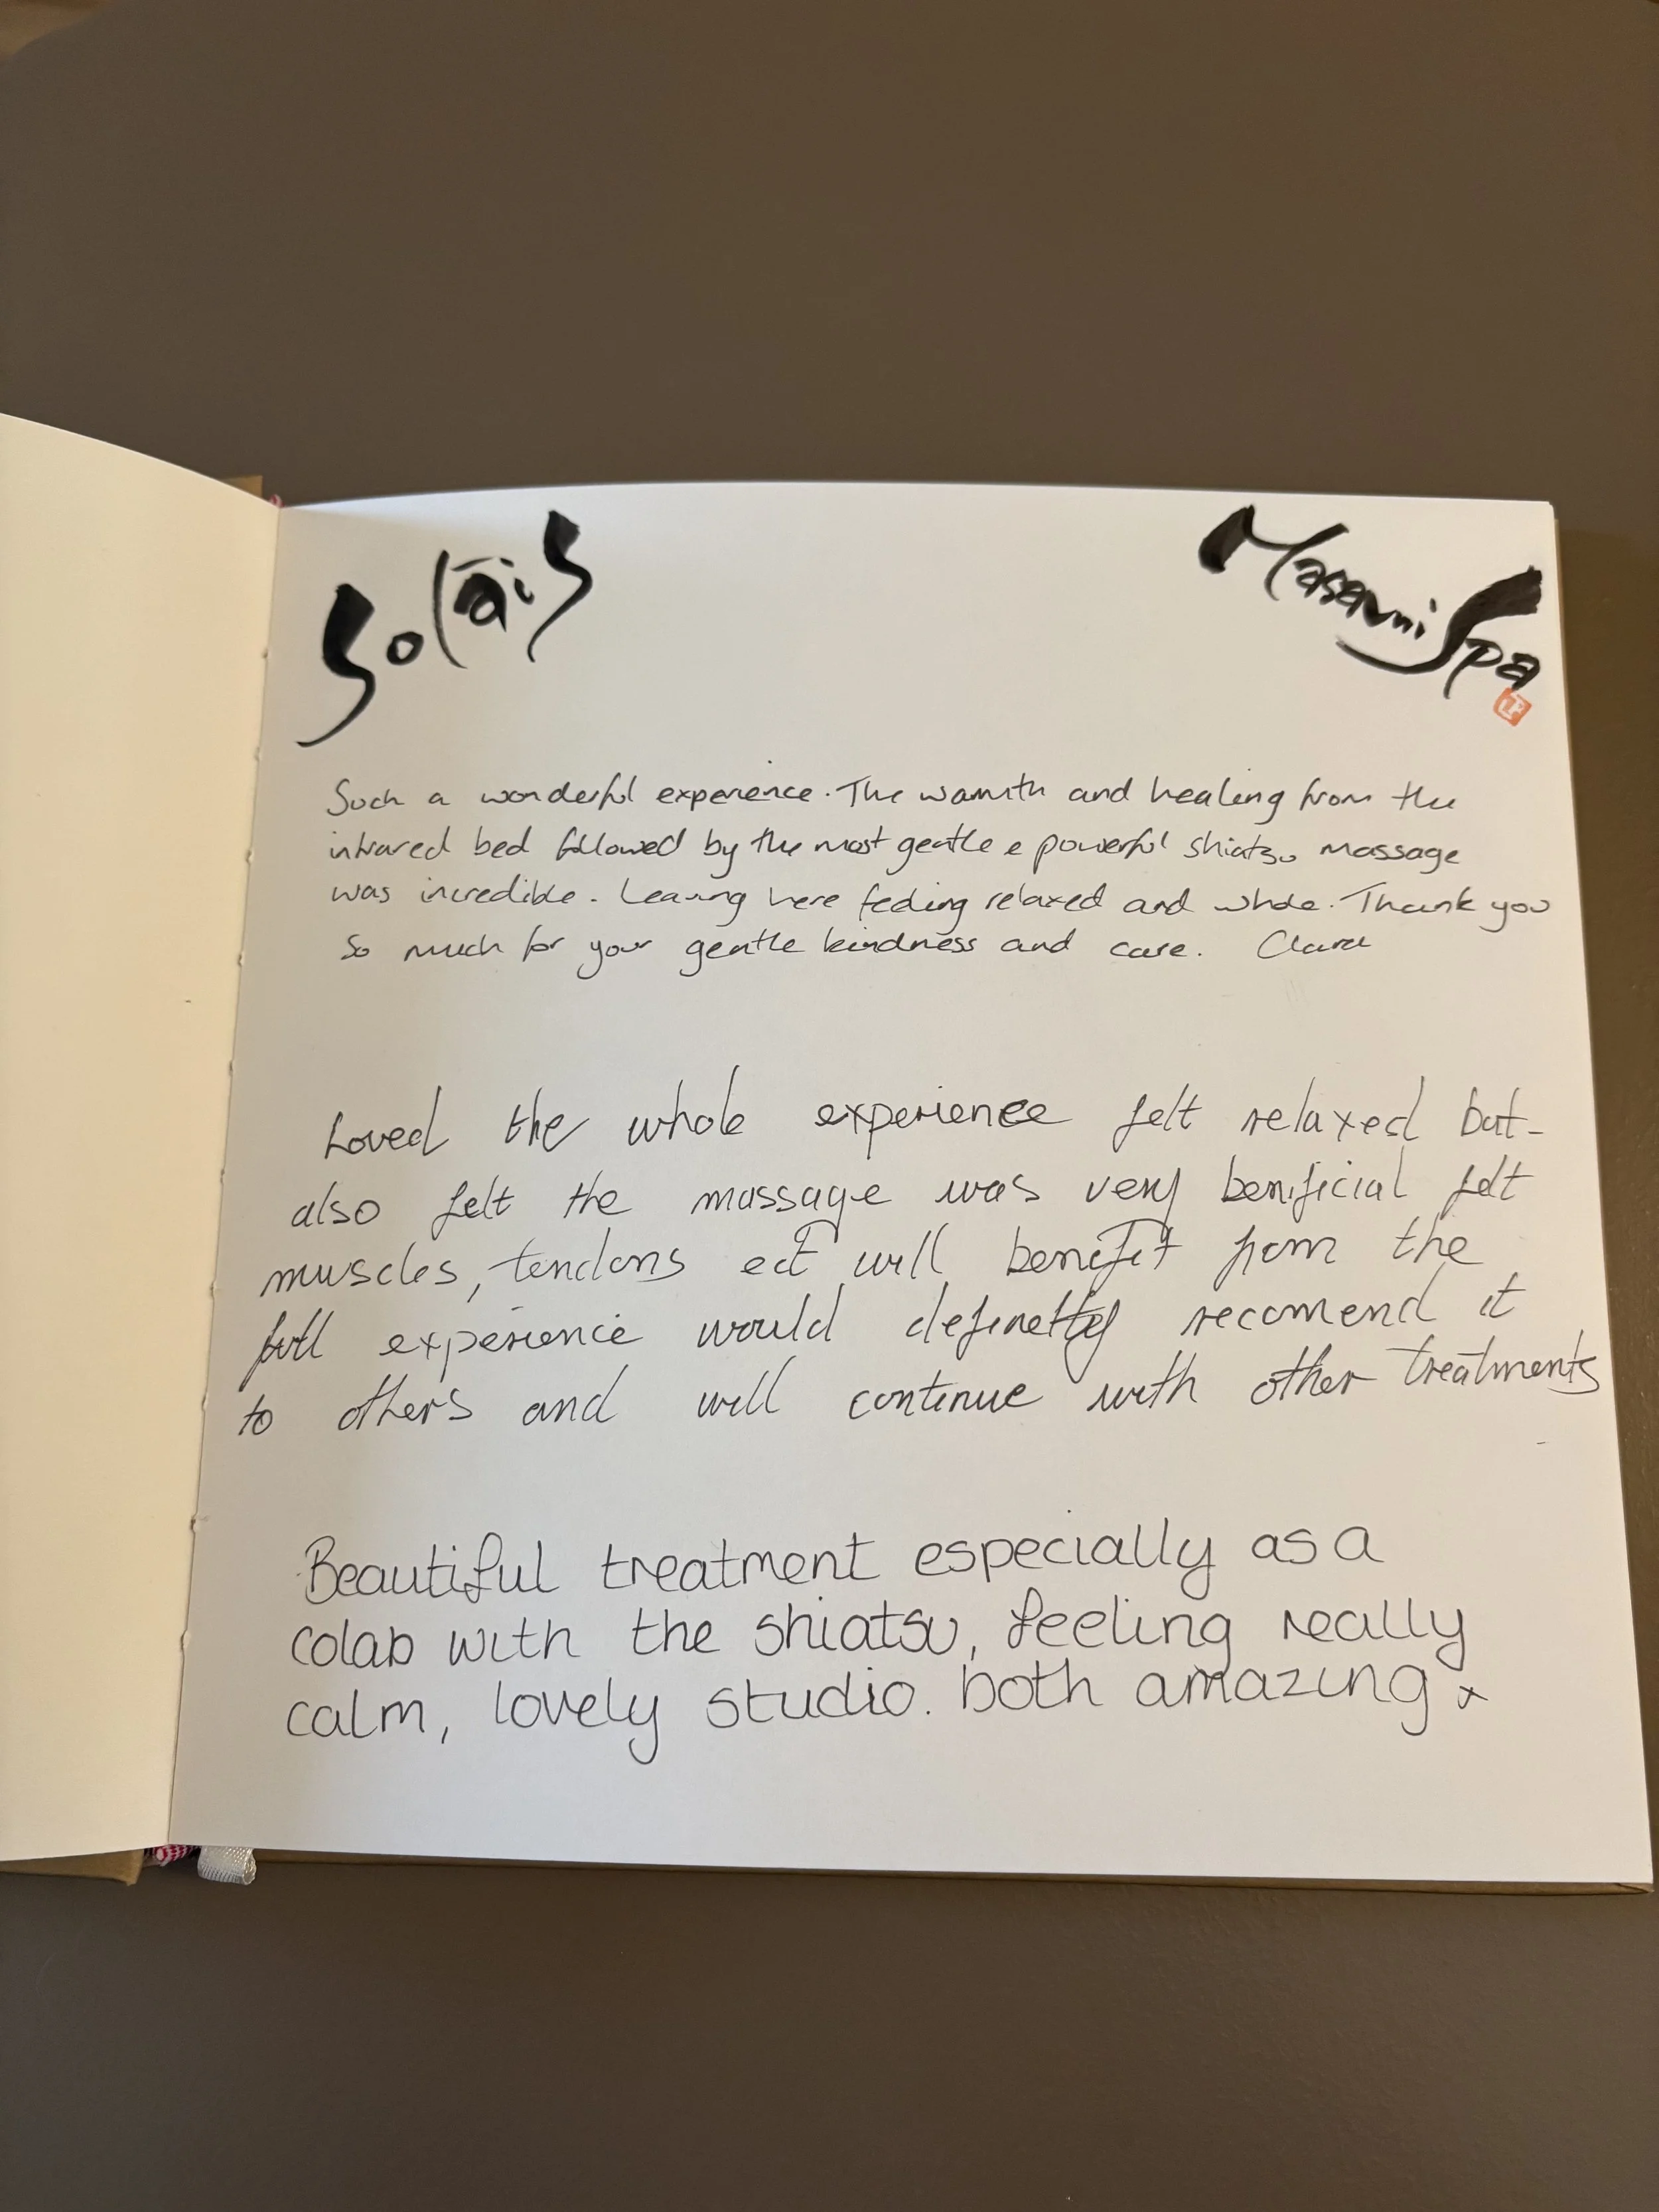 Solāis
Masami Spa
Such a wonderful experience. The warmth and healing from the
infrared bed followed by the most gentle e powerful shiatsu massage
was incredible. Leaving here feeling relaxed and whole. Thank you
so much for your gentle kindness and care. Clara
Loved the whole experience felt relaxed but
also felt the massage was very benificial felt
muscles, tendons ect will benefit from the
full experience would definetly recomend it
to others and will continue with other treatments
Beautiful treatment especially as a
colab with the shiatsu, feeling really
calm, lovely studio. both amazing x